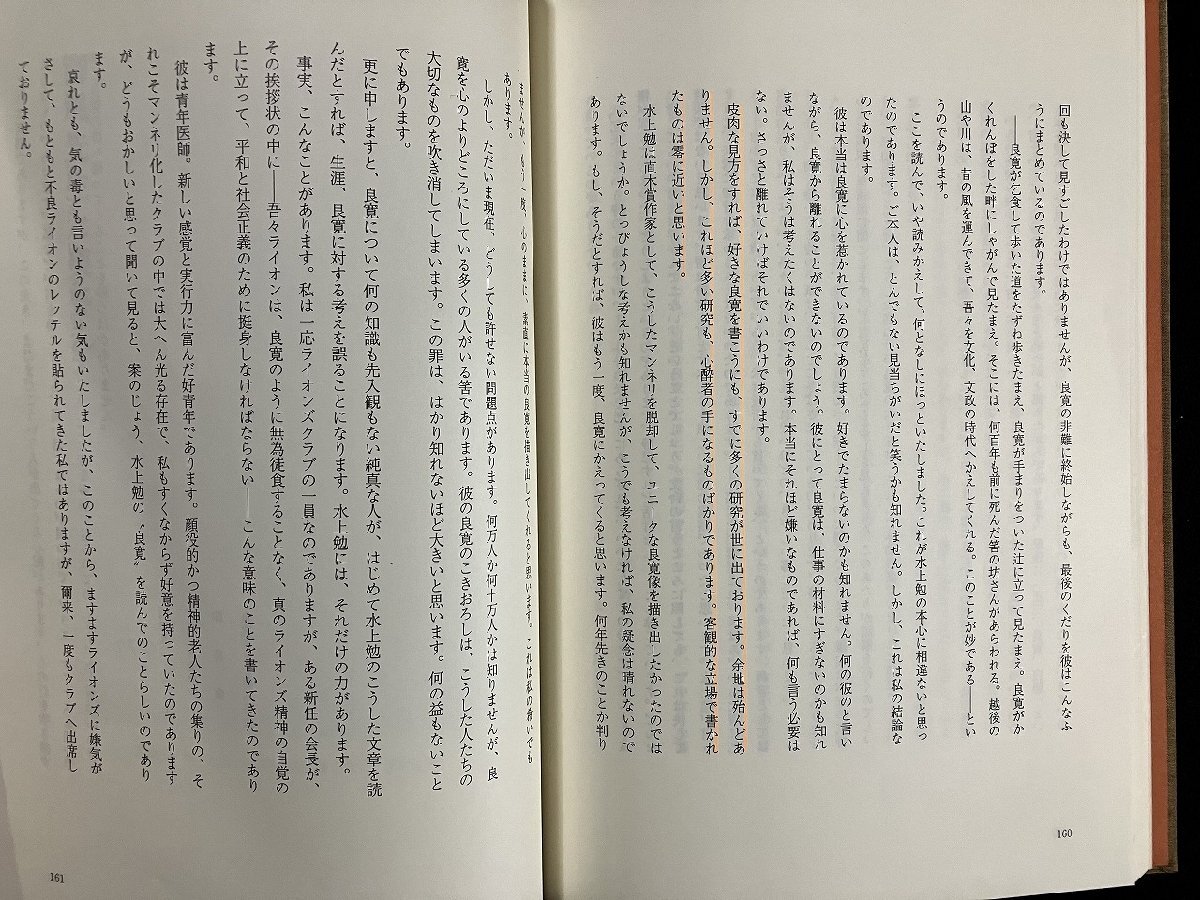 回も決して見すごしたわけではありませんが、良寛の非難に終始しながらも、最後のくだりを彼はこんなふ
うにまとめているのであります。
――良寛が乞食して歩いた道をたずね歩きたまえ、良寛が手まりをついた辻に立って見たまえ。良寛がか
くれんぼをした畔にしゃがんで見たまえ。そこには、何百年も前に死んだ筈の坊さんがあらわれる。越後の
山や川は、昔の風を運んできて、吾々を文化、文政の時代へかえしてくれる。このことが妙である――とい
うのであります。
ここを読んで、いや読みかえして、何となしにほっといたしました。これが水上勉の本心に相違ないと思っ
たのであります。ご本人は、とんでもない見当ちがいだと笑うかも知れません。しかし、これは私の結論な
のであります。
彼は本当は良寛に心を惹かれているのであります。好きでたまらないのかも知れません。何の彼のと言い
ながら、良寛から離れることができないのでしょう。彼にとって良寛は、仕事の材料にすぎないのかも知れ
ませんが、私はそうは考えたくはないのであります。本当にそれほど嫌いなものであれば、何も言う必要は
ない。さっさと離れていけばそれでいいわけであります。
皮肉な見方をすれば、好きな良寛を書こうにも、すでに多くの研究が世に出ております。余地は殆んどあ
りません。しかし、これほど多い研究も、心酔者の手になるものばかりであります。客観的な立場で書かれ
たものは零に近いと思います。
水上勉は直木賞作家として、こうしたマンネリを脱却して、ユニークな良寛像を描き出したかったのでは
ないでしょうか。とっぴょうしな考えかも知れませんが、こうでも考えなければ、私の疑念は晴れないので
あります。もし、そうだとすれば、彼はもう一度、良寛にかえってくると思います。何年先きのことか判り
160
ませんが、もう一度、心のままに、素直に本当の良寛を描き出してくれると思います。これは私の救いでも
あります。
しかし、ただいま現在、どうしても許せない問題点があります。何万人か何十万人かは知りませんが、良
寛を心のよりどころにしている多くの人がいる筈であります。彼の良寛のこきおろしは、こうした人たちの
大切なものを吹き消してしまいます。この罪は、はかり知れないほど大きいと思います。何の益もないこと
でもあります。
更に申しますと、良寛について何の知識も先入観もない純真な人が、はじめて水上勉のこうした文章を読
んだとすれば、生涯、良寛に対する考えを誤ることになります。水上勉には、それだけの力があります。
事実、こんなことがあります。私は一応ライオンズクラブの一員なのでありますが、ある新任の会長が、
その挨拶状の中に――吾々ライオンは、良寛のように無為徒食することなく、真のライオンズ精神の自覚の
上に立って、平和と社会正義のために挺身しなければならない――こんな意味のことを書いてきたのであり
ます。
彼は青年医師。新しい感覚と実行力に富んだ好青年であります。顔役的かつ精神的老人たちの集りの、そ
れこそマンネリ化したクラブの中では大へん光る存在で、私もすくなからず好意を持っていたのであります
が、どうもおかしいと思って聞いて見ると、案のじょう、水上勉の〝良寛〟を読んでのことらしいのであり
ます。
哀れとも、気の毒とも言いようのない気もいたしましたが、このことから、ますますライオンズに嫌気が
さして、もともと不良ライオンのレッテルを貼られてきた私ではありますが、爾来、一度もクラブへ出席し
ておりません。
161